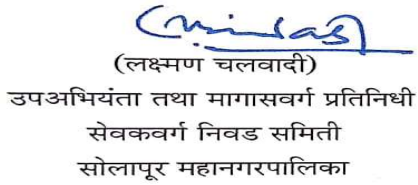 (लक्ष्मण चलवादी)
उपअभियंता तथा मागासवर्ग प्रतिनिधी
सेवकवर्ग निवड समिती
सोलापूर महानगरपालिका